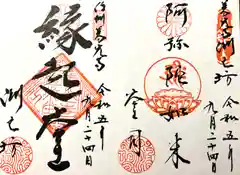 善光寺
渕之坊
令和五年
九月二十四日
阿弥
陀如
来
信州善光寺
縁起堂
令和五年
九月二十四日
渕之坊